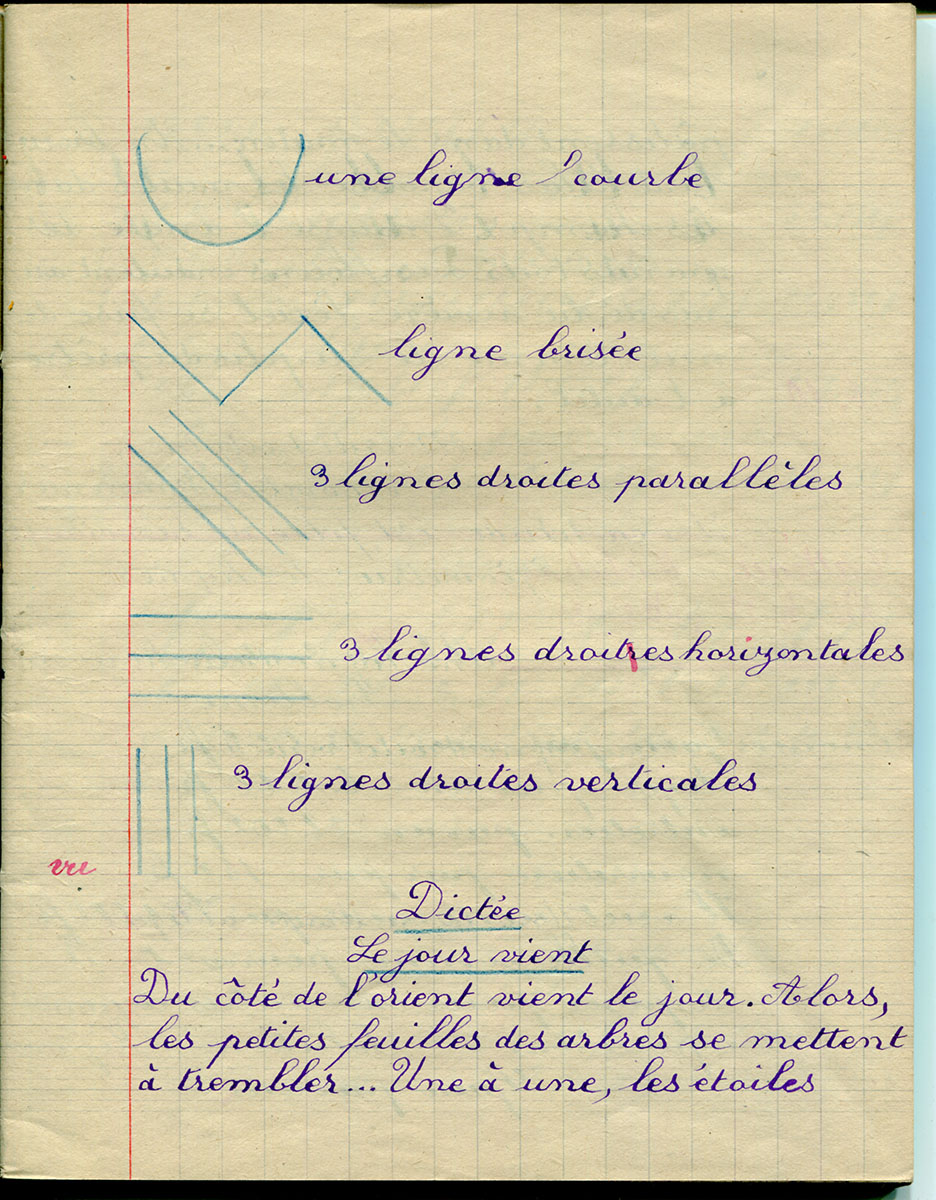 une ligne courbe
ligne brisée
3 lignes droites parallèles
3 lignes droitres horizontales
3 lignes droites verticales
vu
Dictée
Le jour vient
Du côté de l'orient vient le jour. Alors,
les petites feuilles des arbres se mettent
à trembler... Une à une, les étoiles